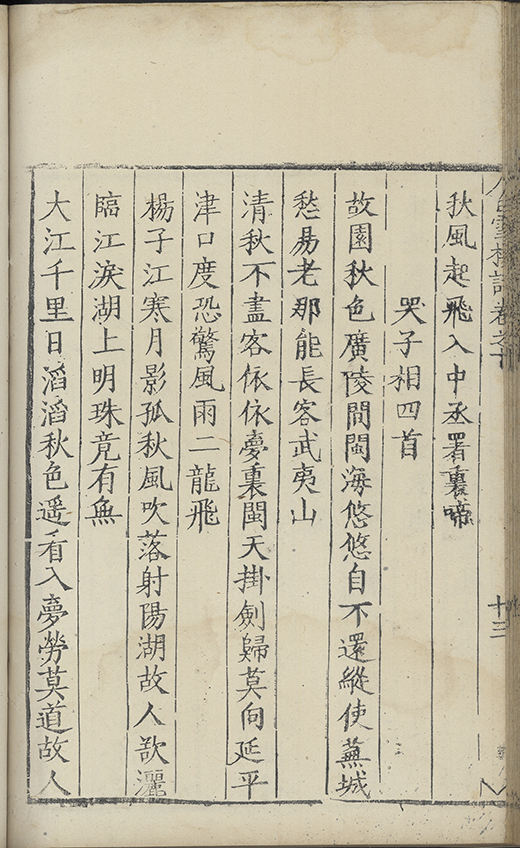 秋風起飛入中丞署裏啼
哭子相四首
故園秋色廣陵間閩海悠悠自不還縱使蕪城
愁易老那能長客武夷山
清秋不盡客依依夢裏閩天掛劍歸莫向延平
津口度恐驚風雨二龍飛
楊子江寒月影孤秋風吹落射陽湖故人欲灑
臨江淚湖上明珠竟有無
大江千里日滔滔秋色遥看入夢勞莫道故人
十三